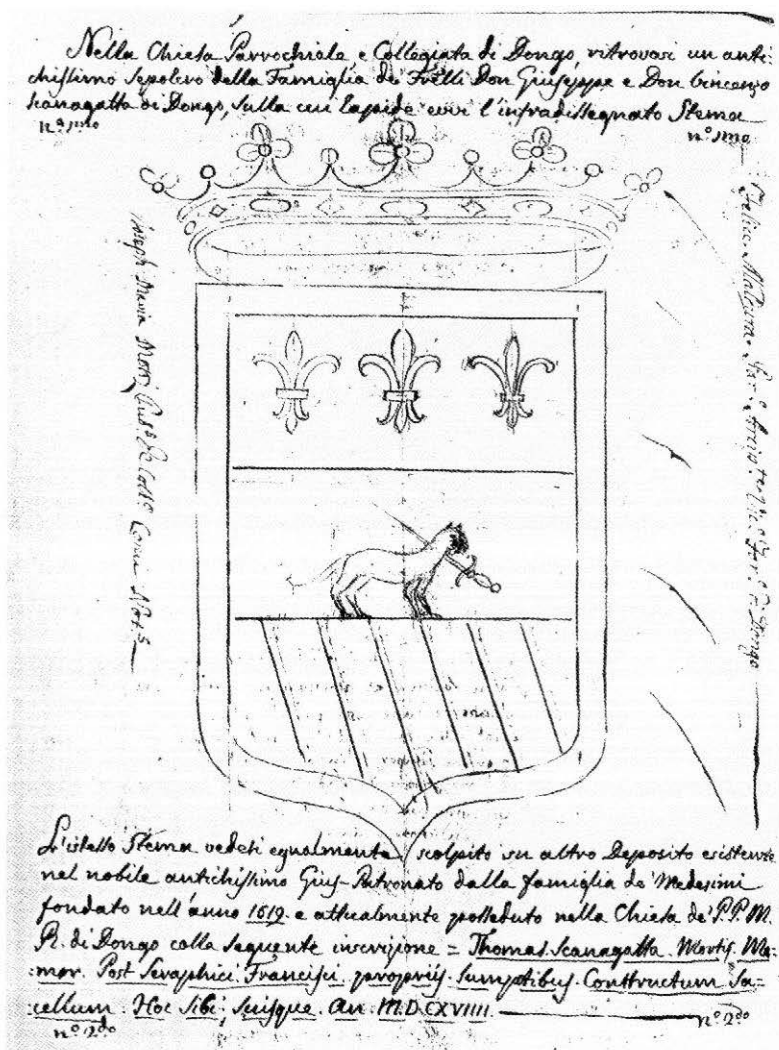 Nella Chiesa Parrochiale e Collegiata di Dongo, ritrovasi un anti:
chissimo Sepolcro della Famiglia de Frelli Don Giuseppe e Don Vincenzo
Scanagatta di Dongo, sulla cui lapide evvi l'infradissegnato Stema
nº 1mo
nº 1mo
Joseph Maria
Felice
Dongo
L'istesso Stema vedesi egualmente scolpito su altro Deposito esistente
nel nobile antichissimo Gius-Patronato dalla famiglia de' Medesimi
fondato nell'anno 1619. e attualmente posseduto nella Chiesa de' P.P. M.
R. di Dongo colla seguente inscrizione = Thomas. Scanagatta. Mortis. Me:
:mor. Post Seraphici. Francisci. proprijs. Sumptibus. Constructum Sa=
:cellum. Hoc Sibi; Suisque. An: M.D.CXVIIII.
nº 2do
nº 2do